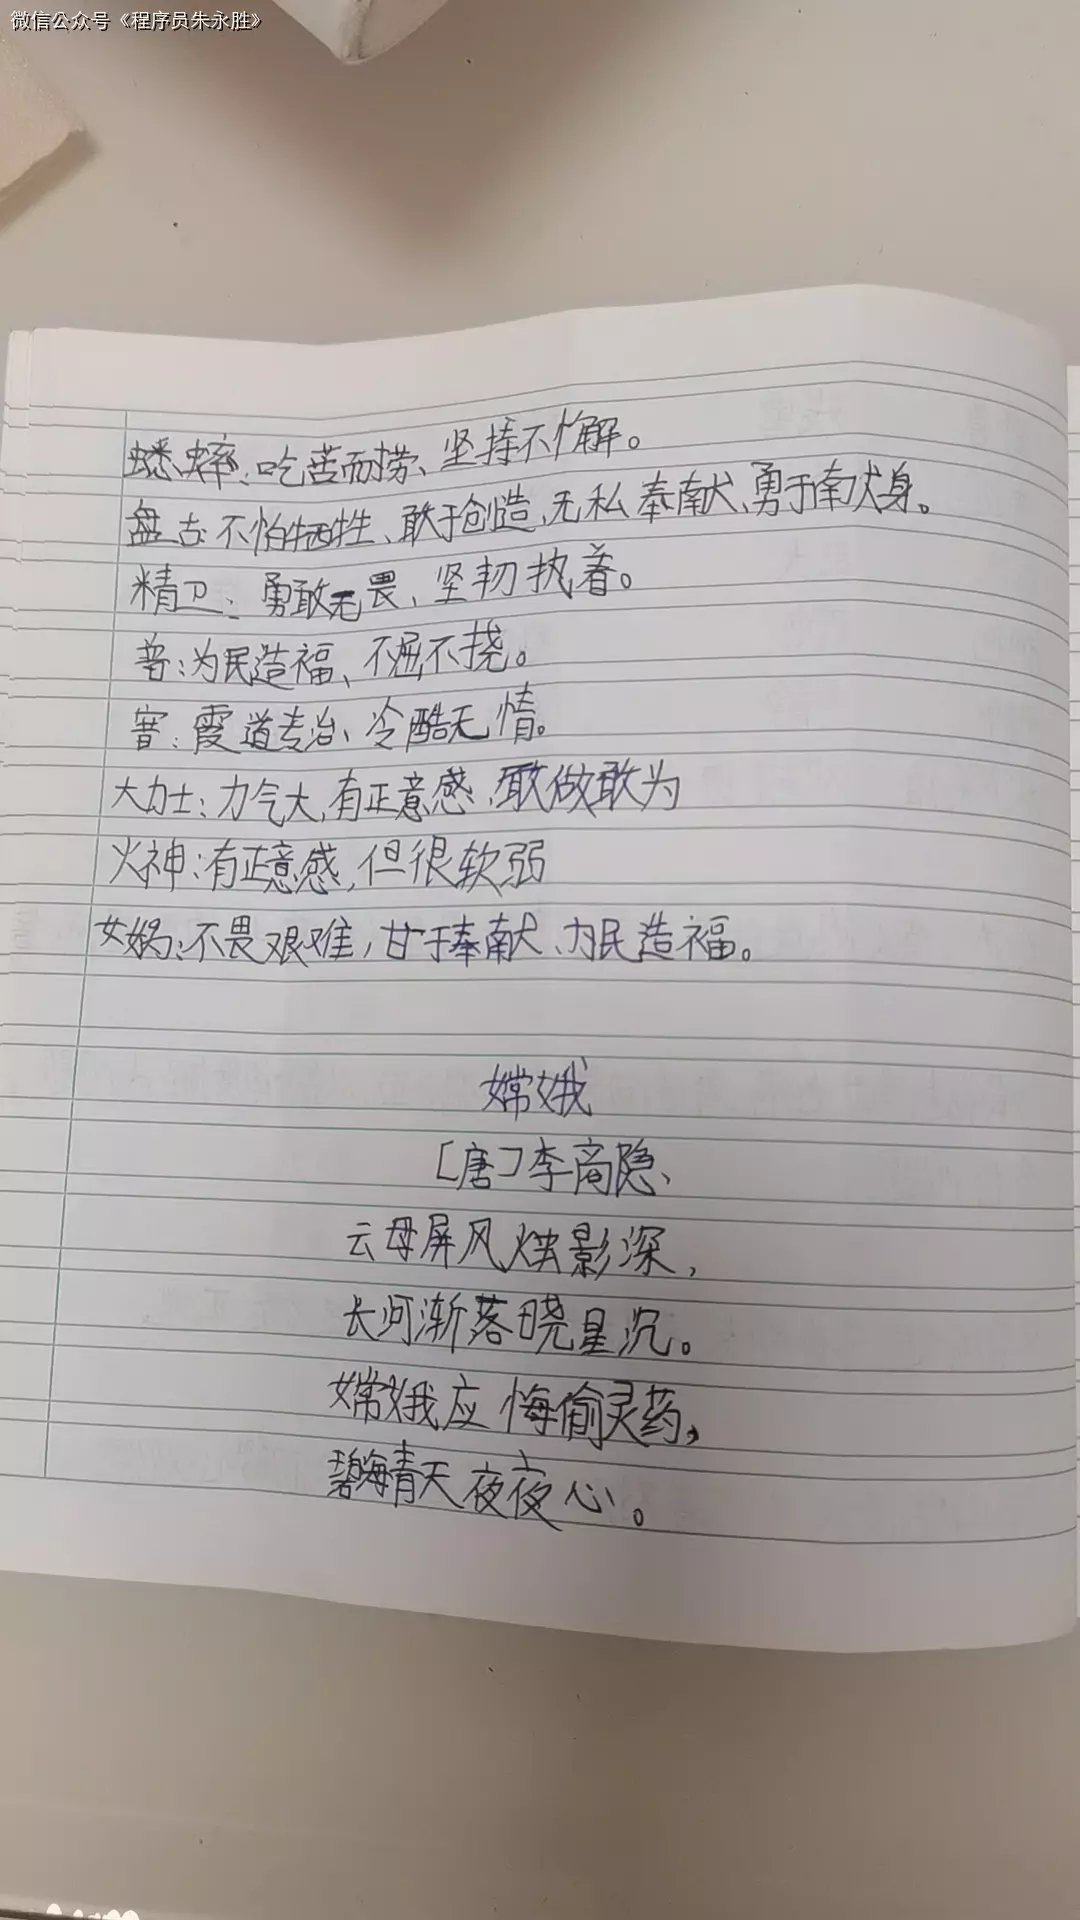 微信公众号《程序员朱永胜》
蟋蟀:吃苦而捞、坚持不懈。
盘古:不怕牺牲、敢于创造、无私奉献、勇于献身。
精卫:勇敢无畏、坚韧执着。
普:为民造福、不屈不挠。
宙:霞道专治、冷酷无情。
大力士:力气大,有正意感,敢做敢为
火神:有正意感,但很软弱
女娲:不畏艰难,甘于奉献、为民造福。
嫦娥
[唐]李商隐、
云母屏风烛影深,
长河渐落晓星沉。
嫦娥应悔偷灵药,
碧海青天夜夜心。